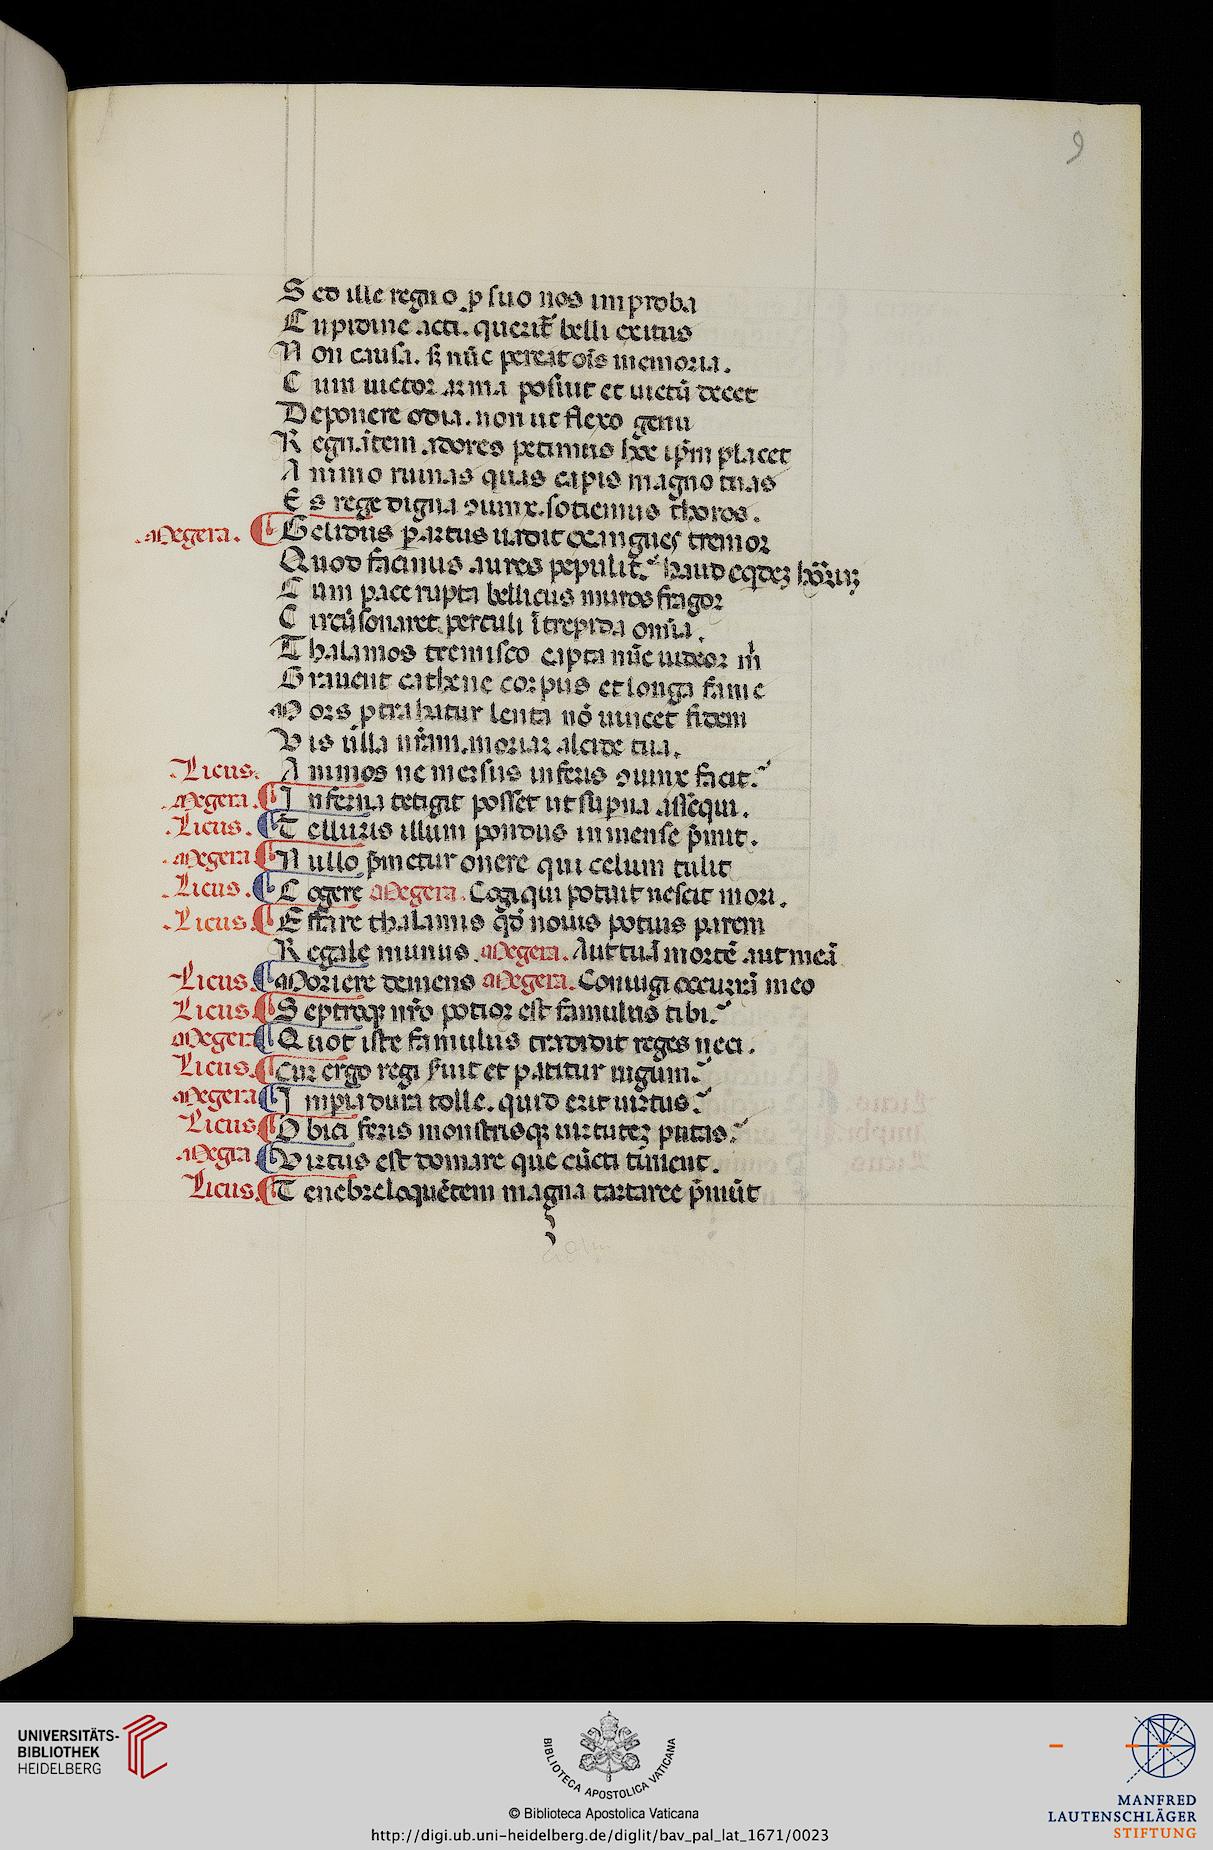 9
Sed ille regno ꝓ suo nos improba
Cupidine acti. querit᷑ belli exitus
Non causa. sꝫ nūc pereat oı̄s memoria.
Cum uictor arma posuit et uictū decet
Deponere odia. non ut flexo genu
Regnāteꝫ adores petimus hoc ip̄m placet
Animo ruinas quas capis magno tuas
Es rege digna ꝯiunx. sotiemus thoros.
.Megera. Gelidus ꝑ artus uadit exangues tremor
Quod facinus aures pepulit? haud eqdeꝫ horrui
Cum pace rupta bellicus muros fragor
Circūsonaret. pertuli ītrepida omīa.
Thalamos tremisco capta nūc uideor m̄
Grauent cathene corpus et longa fame
Mors ꝓtrahatur lenta nō uincet fidem
Vis ulla nr̄am. moriar alcide tua.
.Licus. Animos ne mersus inferis ꝯiunx facit?
.Megera. Inferna tetigit posset ut suꝑna assequi.
.Licus. Telluris illum pondus inmense p̄mit.
.Megera Nullo p̄metur onere qui celum tulit
.Licus. Cogere Megera. Cogi qui potuit nescit mori.
.Licus. Effare thalamis qd̄ nouis potius parem
Regale munus. Megera. Aut tuā mortē aut meā
.Licus. Moriere demens Megera. Coniugi occurrā meo
Licus. Septroqꝫ nr̄o potior est famulus tibi?
Megera Quot iste famulus tradidit reges neci.
Licus. Cur ergo regi seruit et patitur iugum?
.Megera Impia dura tolle. quid erit uirtus?
Licus Obici feris monstrisqꝫ uirtuteꝫ putas?
.Megra Virtus est domare que cūcti timent.
Licus. Tenebre loquētem magna tartaree p̄mūt
UNIVERSITÄTS-
BIBLIOTHEK
HEIDELBERG
BIBLIOTECA APOSTOLICA VATICANA
© Biblioteca Apostolica Vaticana
http://digi.ub.uni-heidelberg.de/diglit/bav_pal_lat_1671/0023
MANFRED
LAUTENSCHLÄGER
STIFTUNG